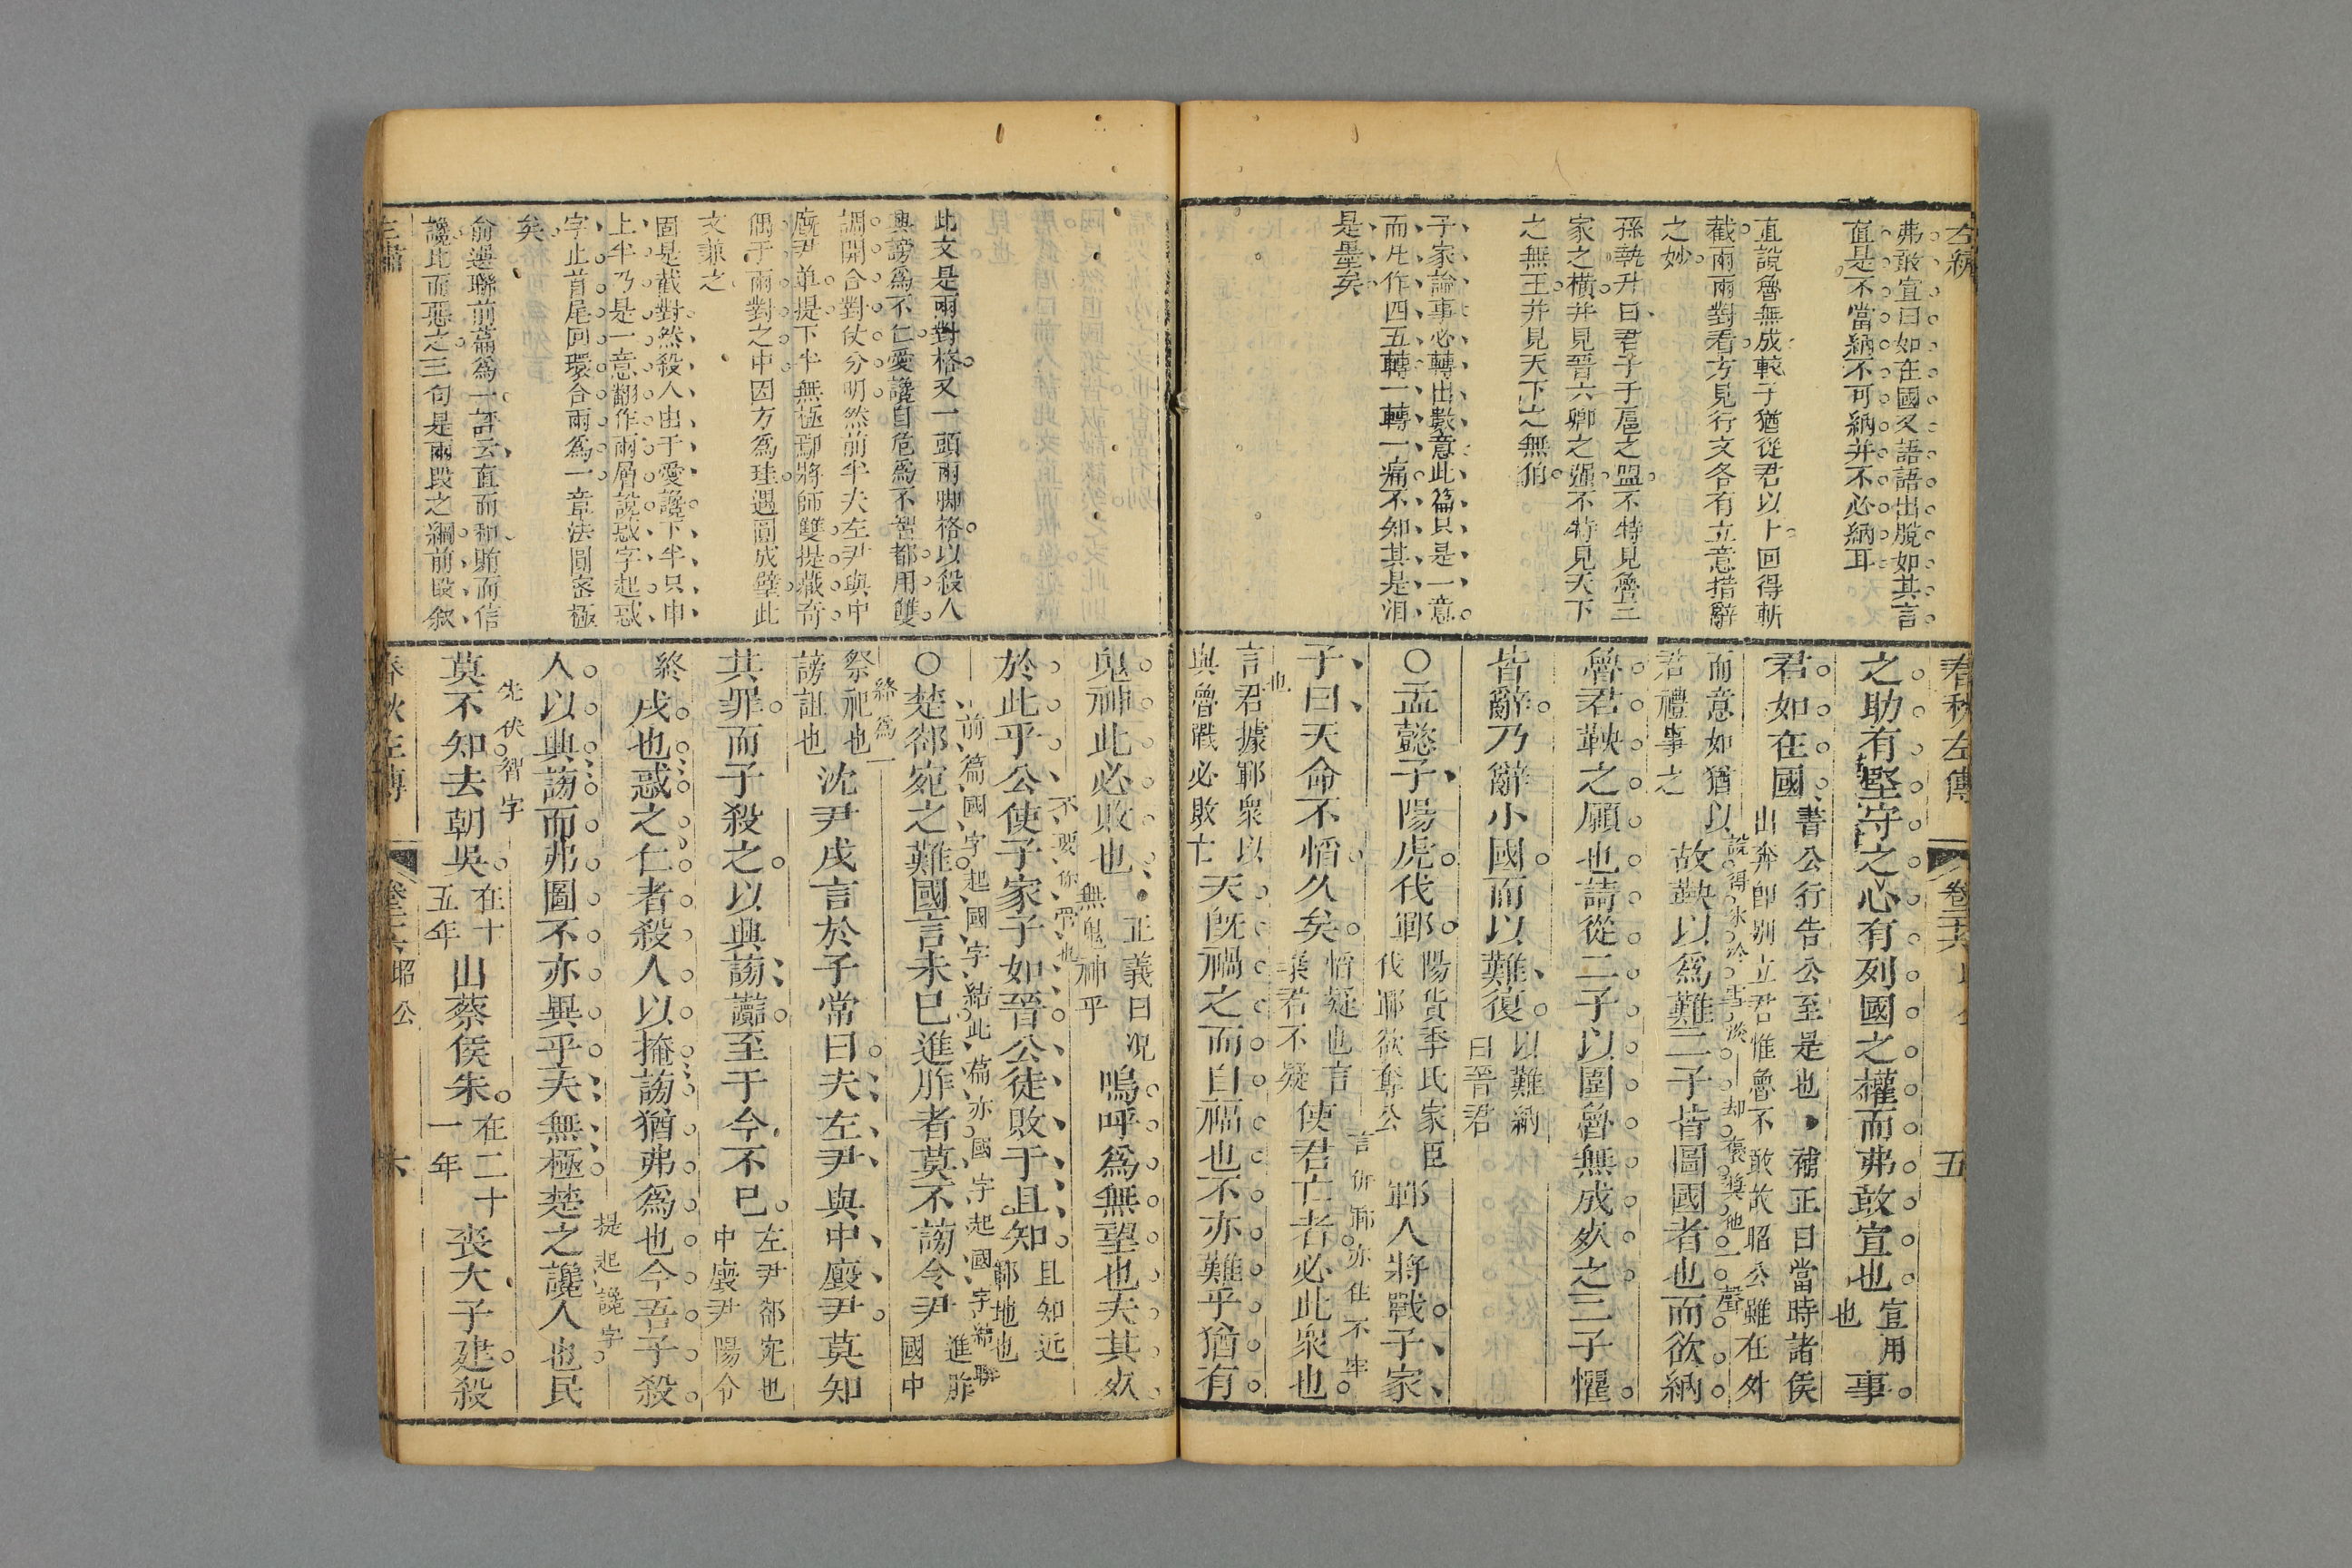 左繡
弗敢宣曰如在國句語語出脫如其言
直是不當納不可納并不必納耳
直說魯無成較子猶從君以卜回得斬
截兩兩對看方見行文各有立意措辭
之妙
孫執升曰君子于扈之盟不特見魯三
家之橫并見晉六卿之彊不特見天下
之無王并見天下之無伯
子家論事必轉出數意此篇只是一意
而凡作四五轉一轉一痛不知其是泪
是墨矣
春秋左傳
卷二十六
五
之助有堅守之心有列國之權而弗敢宣也宣用
也事
君如在國書公行告公至是也補正曰當時諸侯
出奔卽別立君惟魯不敢故昭公雖在外
而意如猶以
君禮事之故鞅以爲難二子皆圖國者也而欲納
說得氷冷雪淡却褒獎他一聲
魯君鞅之願也請從二子以圍魯無成死之二子懼
皆辭乃辭小國而以難復以難納
白晉君
○孟懿子陽虎伐鄆陽貨季氏家臣
伐鄆欲奪公鄆人將戰子家
言伐鄆亦住不牢
子曰天命不慆久矣慆疑也言
棄君不疑使君亡者必此衆也
也
言君據鄆衆以
與魯戰必敗亡天旣禍之而自福也不亦難乎猶有
鬼神此必敗也正義曰況
無鬼神乎嗚呼爲無望也夫其死
不要你管也
於此乎公使子家子如晉公徒敗于且知且知近
鄆地也
前篇國字起國字結此篇亦國字起國字結聯
○楚郤宛之難國言未已進胙者莫不謗令尹進胙
國中
祭祀也
謗詛也沈尹戌言於子常曰夫左尹與中廄尹莫知
終爲一
其罪而子殺之以興謗讟至于今不已左尹郤宛也
中廄尹陽令
終戌也惑之仁者殺人以掩謗猶弗爲也今吾子殺
人以興謗而弗圖不亦異乎夫無極楚之讒人也民
提起讒字
先伏智字
莫不知去朝吳在十
五年出蔡侯朱在二十
一年喪大子建殺
此文是兩對格又一頭兩脚格以殺人
興謗爲不仁愛讒自危爲不智都用雙
調開合對仗分明然前半夫左尹與中
廄尹單提下半無極鄢將師雙提藏奇
偶于兩對之中因方爲珪遇圓成璧此
文兼之
固是截對然殺人由于愛讒下半只申
上半乃是一意翻作兩層說惑字起惑
字止首尾回環合兩爲一章法圓密極
矣
俞選聯前篇爲一評云直而和賄而信
讒比而惡之三句是兩段之綱前段敘
春秋左傳
昭公
六